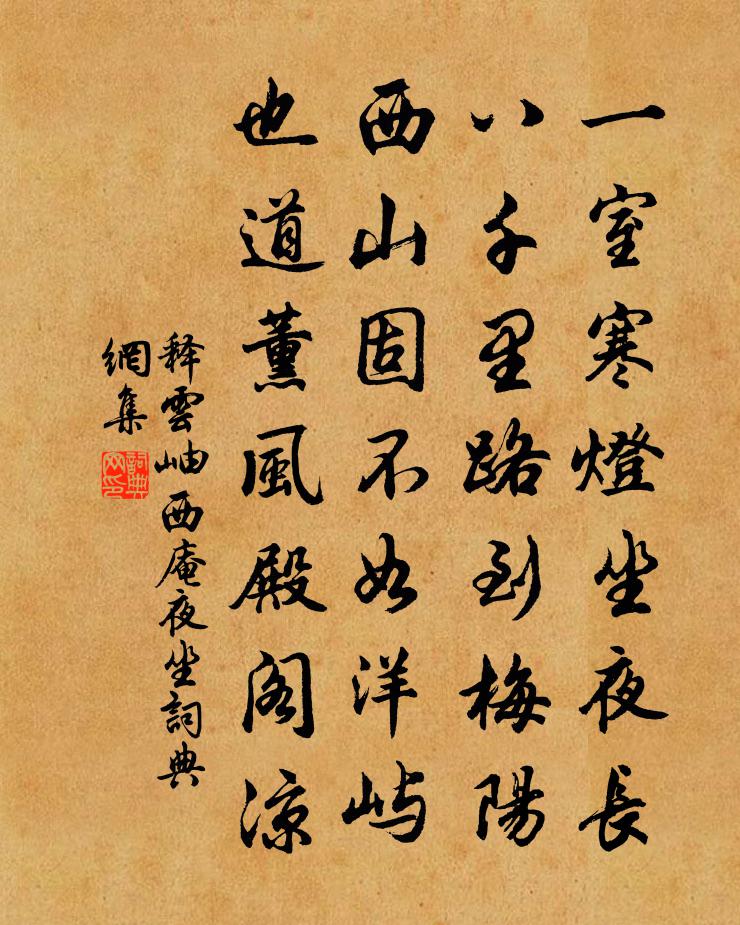 一室寒燈坐夜長
八千里路到梅陽
西山固不如洋嶼
也道薰風殿閣凉
释雲岫西庵夜坐詞典
網集
詞典
网印